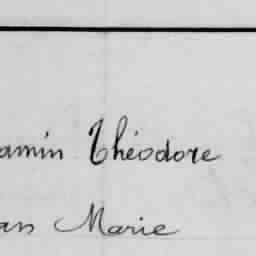 amin Théodore
ans Marie